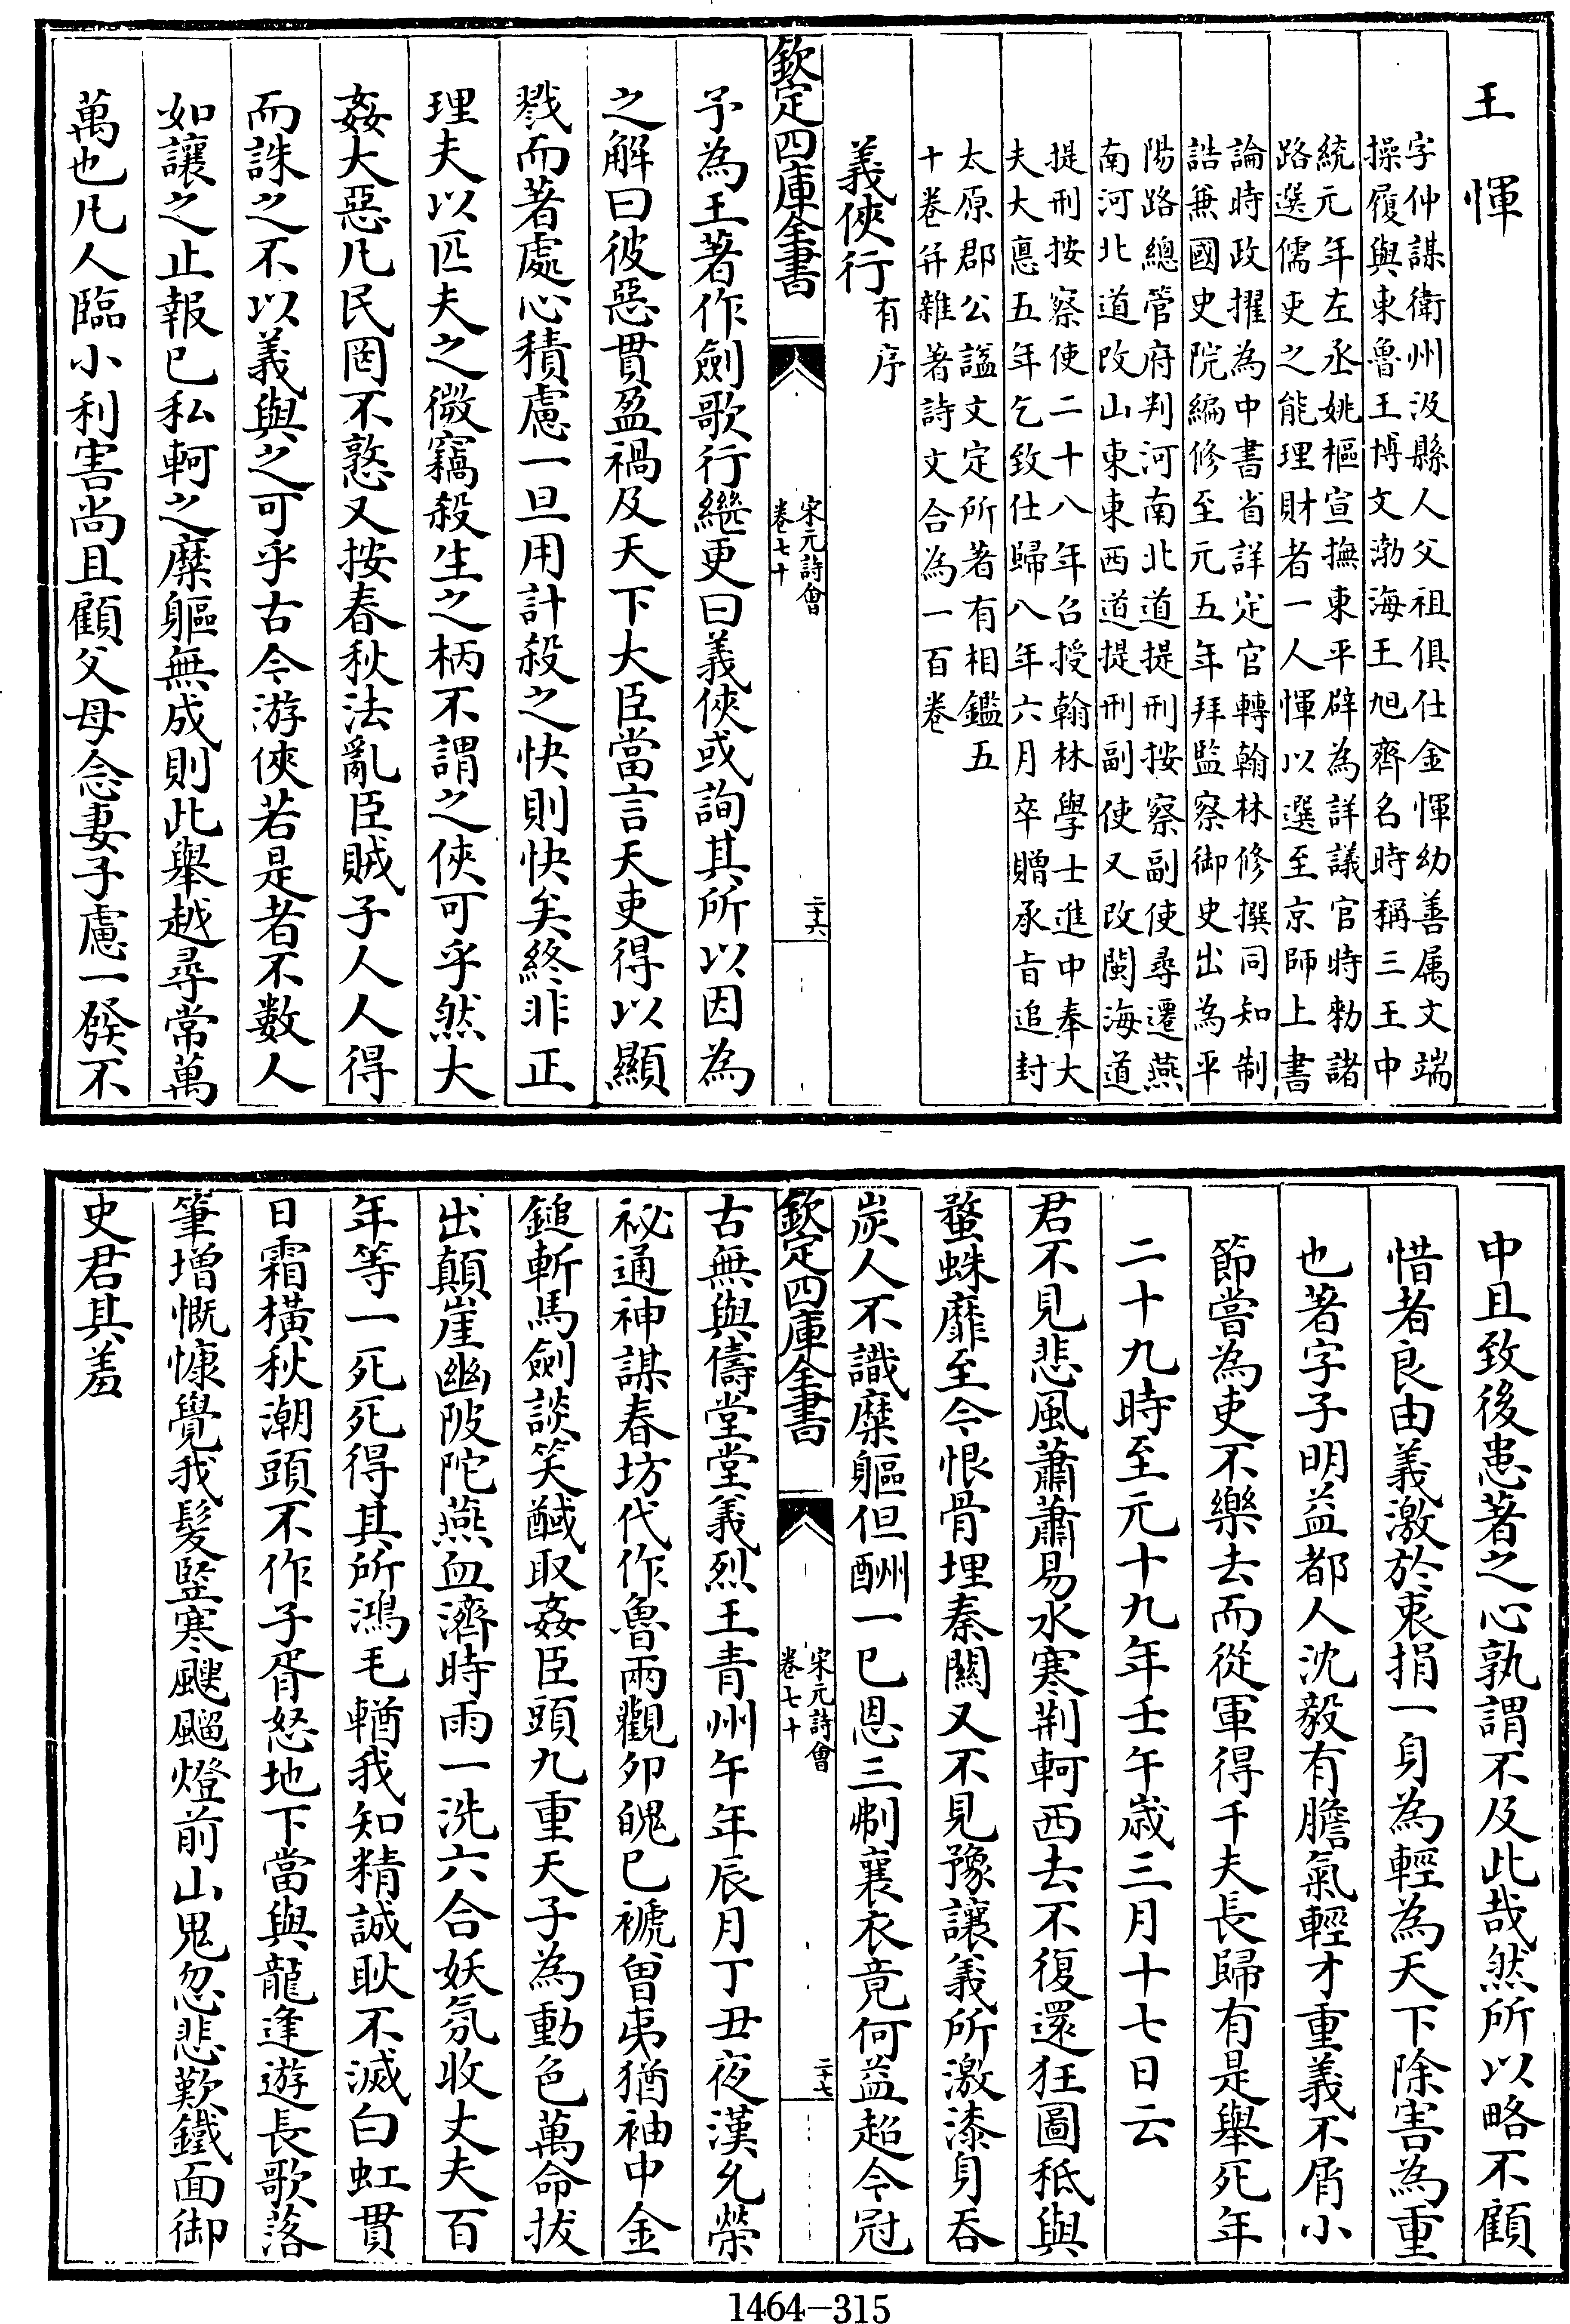 王惲
字仲謀衛州汲縣人父祖俱仕金惲幼善属文端
操履與東魯王博文渤海王旭齊名時稱三王中
統元年左丞姚樞宣撫東平辟為詳議官時勅諸
路選儒吏之能理財者一人惲以選至京師上書
論時政擢為中書省詳定官轉翰林修撰同知制
誥兼國史院編修至元五年拜監察御史出為平
陽路總管府判河南北道提刑按察副使尋遷燕
南河北道改山東東西道提刑副使又改閩海道
提刑按察使二十八年召授翰林學士進中奉大
夫大悳五年乞致仕歸八年六月卒贈承㫖追封
太原郡公謚文定所著有相鑑五
十卷并雜著詩文合為一百卷
義俠行有序
欽定四庫全書
宋元詩會
卷七十
二十六
予為王著作劍歌行繼更曰義俠或詢其所以因為
之解曰彼惡貫盈禍及天下大臣當言天吏得以顯
戮而著處心積慮一旦用計殺之快則快矣終非正
理夫以匹夫之微竊殺生之柄不謂之俠可乎然大
姦大惡凡民罔不憝又按春秋法亂臣賊子人人得
而誅之不以義與之可乎古今游俠若是者不數人
如讓之止報已私軻之糜軀無成則此舉越尋常萬
萬也凡人臨小利害尚且顧父母念妻子慮一發不
中且致後患著之心孰謂不及此哉然所以略不顧
惜者良由義激於衷捐一身為輕為天下除害為重
也著字子明益都人沈毅有膽氣輕才重義不屑小
節嘗為吏不樂去而從軍得千夫長歸有是舉死年
二十九時至元十九年壬午歲三月十七日云
君不見悲風蕭蕭易水寒荆軻西去不復還狂圖秪與
蝥蛛靡至今恨骨埋秦關又不見豫讓義所激漆身吞
炭人不識糜軀但酬一已恩三刜襄衣竟何益超今冠
欽定四庫全書
宋元詩會
卷七十
二十七
古無與儔堂堂義烈王青州午年辰月丁丑夜漢允榮
祕通神謀春坊代作魯兩觀卯魄已褫曾夷猶袖中金
鎚斬馬劍談笑馘取姦臣頭九重天子為動色萬命拔
出顛崖幽陂陀燕血濟時雨一洗六合妖氛收丈夫百
年等一死死得其所鴻毛輶我知精誠耿不滅白虹貫
日霜橫秋潮頭不作子胥怒地下當與龍逢遊長歌落
筆增慨慷覺我髮豎寒颼飀燈前山鬼忽悲歎鐵面御
史君其羞
1464-315